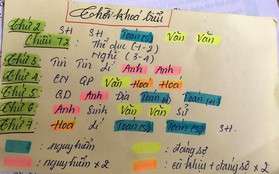 Thời khoá biểu
Thứ 2 SH SH Toán (S) Văn Văn
Chiều T2: Thể dục (1-2)
Nghề (3-4)
Thứ 3 Tin Tin Lí Anh Anh
Thứ 4 CN QP Văn Hoá Hoá
Thứ 5 GD Anh Địa Toán Toán
Thứ 6 Anh Sinh Văn Văn Sử
Thứ 7 Hoá Lí Toán Toán SH
: nguy hiểm
: đáng sợ
: nguy hiểm x 2